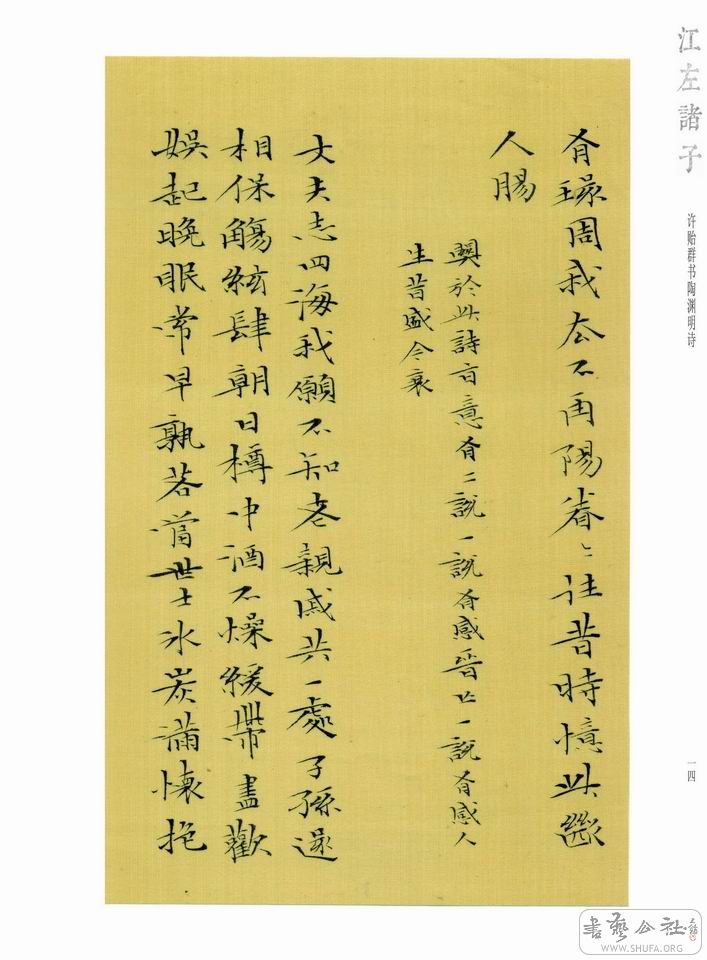 江左諸子
许贻群书陶渊明诗
一四
有環周我去不再陽眷〻往昔時憶此斷
人腸
於此詩旨意有二說一說有感晉亡一說有感人
生昔盛今衰
丈夫志四海我願不知老親戚共一處子孫還
相保觴絃肆朝日樽中酒不燥緩帶盡歡
娛起晚眠常早孰若當世士冰炭滿懷抱
書藝公社
WWW.SHUFA.ORG